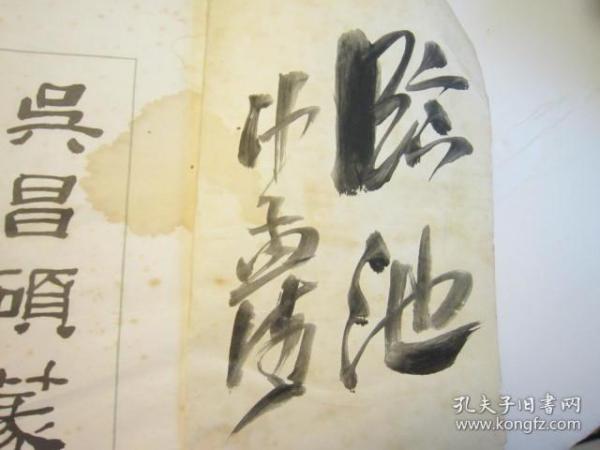 臨池
沙孟海
吳昌碩篆
孔夫子旧书网
www.kongfz.com